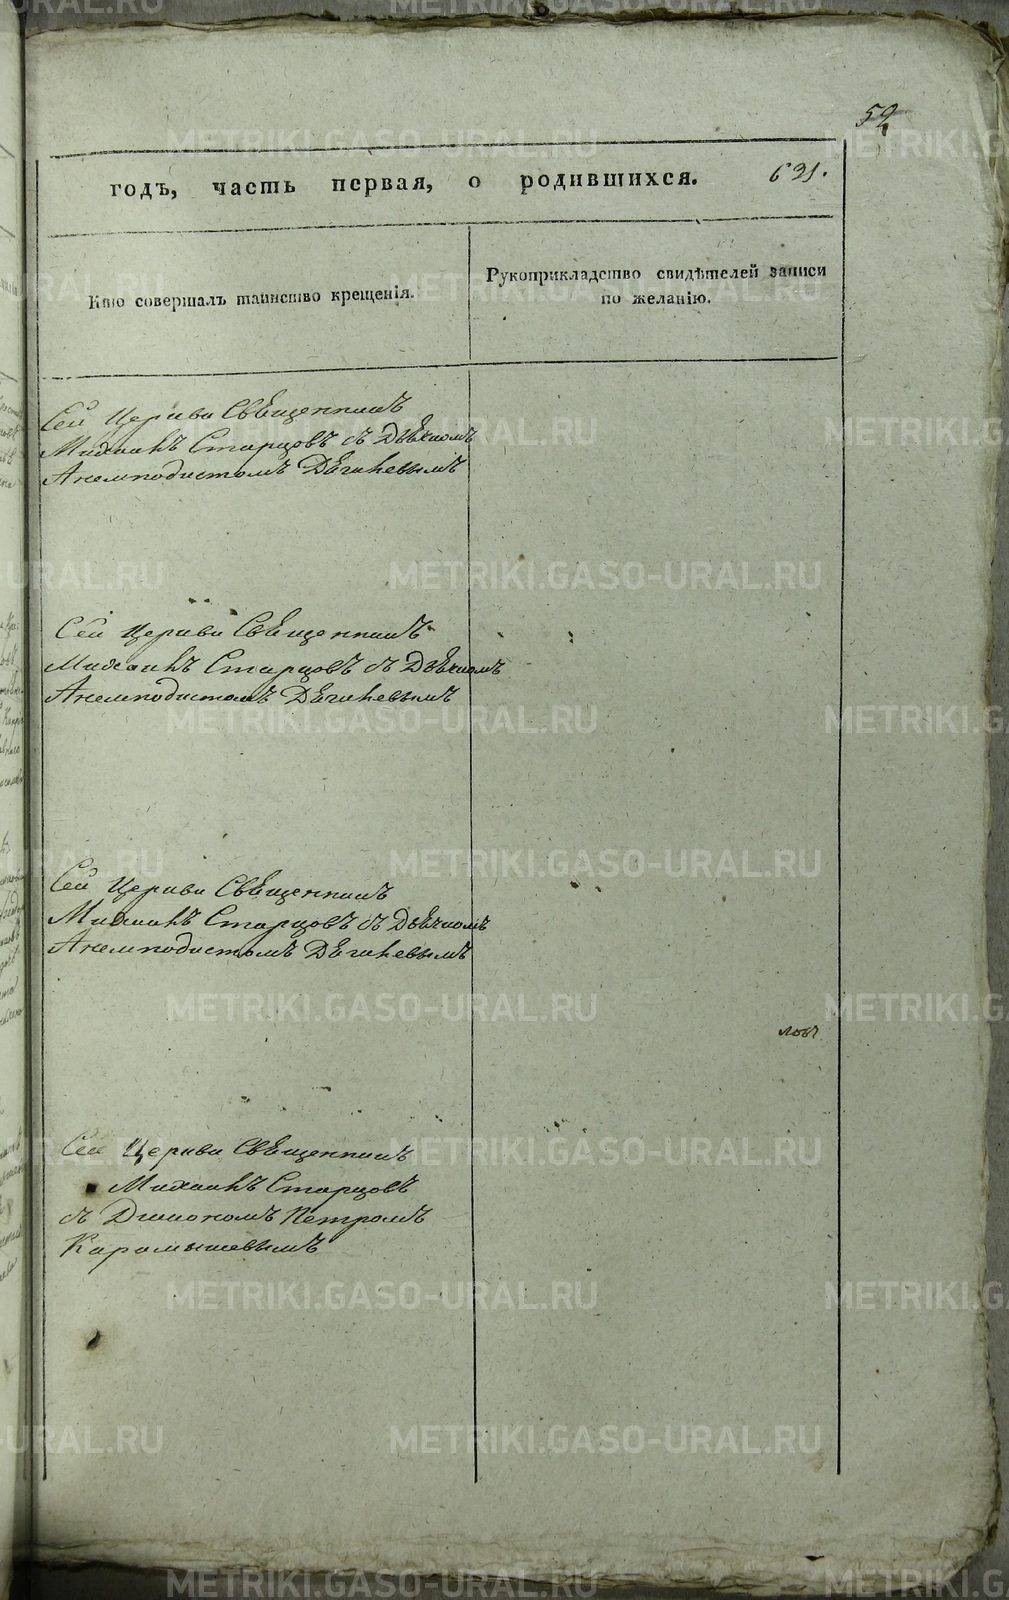 52
годъ, часть первая, о родившихся. 631.
Кто совершалъ таинство крещенія.
Рукоприкладство свидѣтелей записи
по желанію.
Сей Церкви Священникъ
Михаилъ Старцовъ съ Дьячкомъ
Анемподистомъ Дягилевымъ
Сей Церкви Священникъ
Михаилъ Старцовъ съ Дьячкомъ
Анемподистомъ Дягилевымъ
Сей Церкви Священникъ
Михаилъ Старцовъ съ Дьячкомъ
Анемподистомъ Дягилевымъ
Сей Церкви Священникъ
Михаилъ Старцовъ
съ Диакономъ Петромъ
Карамышевымъ
METRIKI.GASO-URAL.RU